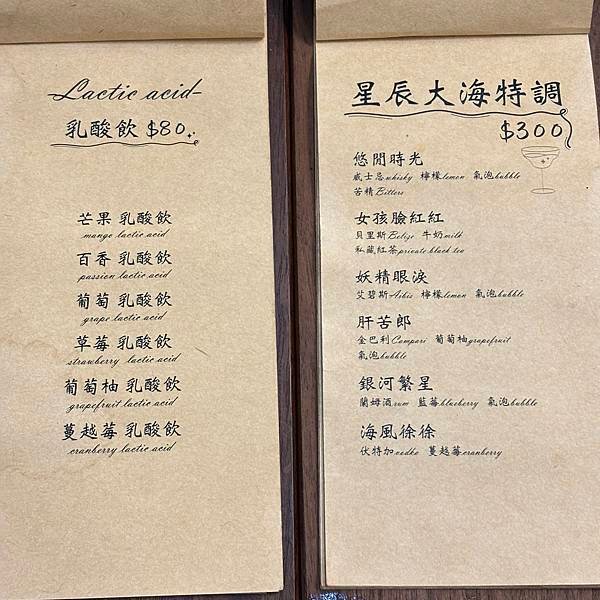 Lactic acid
乳酸飲 $80.
芒果 乳酸飲
mango lactic acid
百香 乳酸飲
passion lactic acid
葡萄 乳酸飲
grape lactic acid
草莓 乳酸飲
strawberry lactic acid
葡萄柚 乳酸飲
grapefruit lactic acid
蔓越莓 乳酸飲
cranberry lactic acid
星辰大海特調
$300
悠閒時光
威士忌whisky 檸檬lemon 氣泡bubble
苦精Bitters
女孩臉紅紅
貝里斯Belize 牛奶milk
私藏紅茶private black tea
妖精眼淚
艾碧斯Aibis 檸檬lemon 氣泡bubble
肝苦郎
金巴利Campari 葡萄柚grapefruit
氣泡bubble
銀河繁星
蘭姆酒rum 藍莓blueberry 氣泡bubble
海風徐徐
伏特加vodka 蔓越莓cranberry